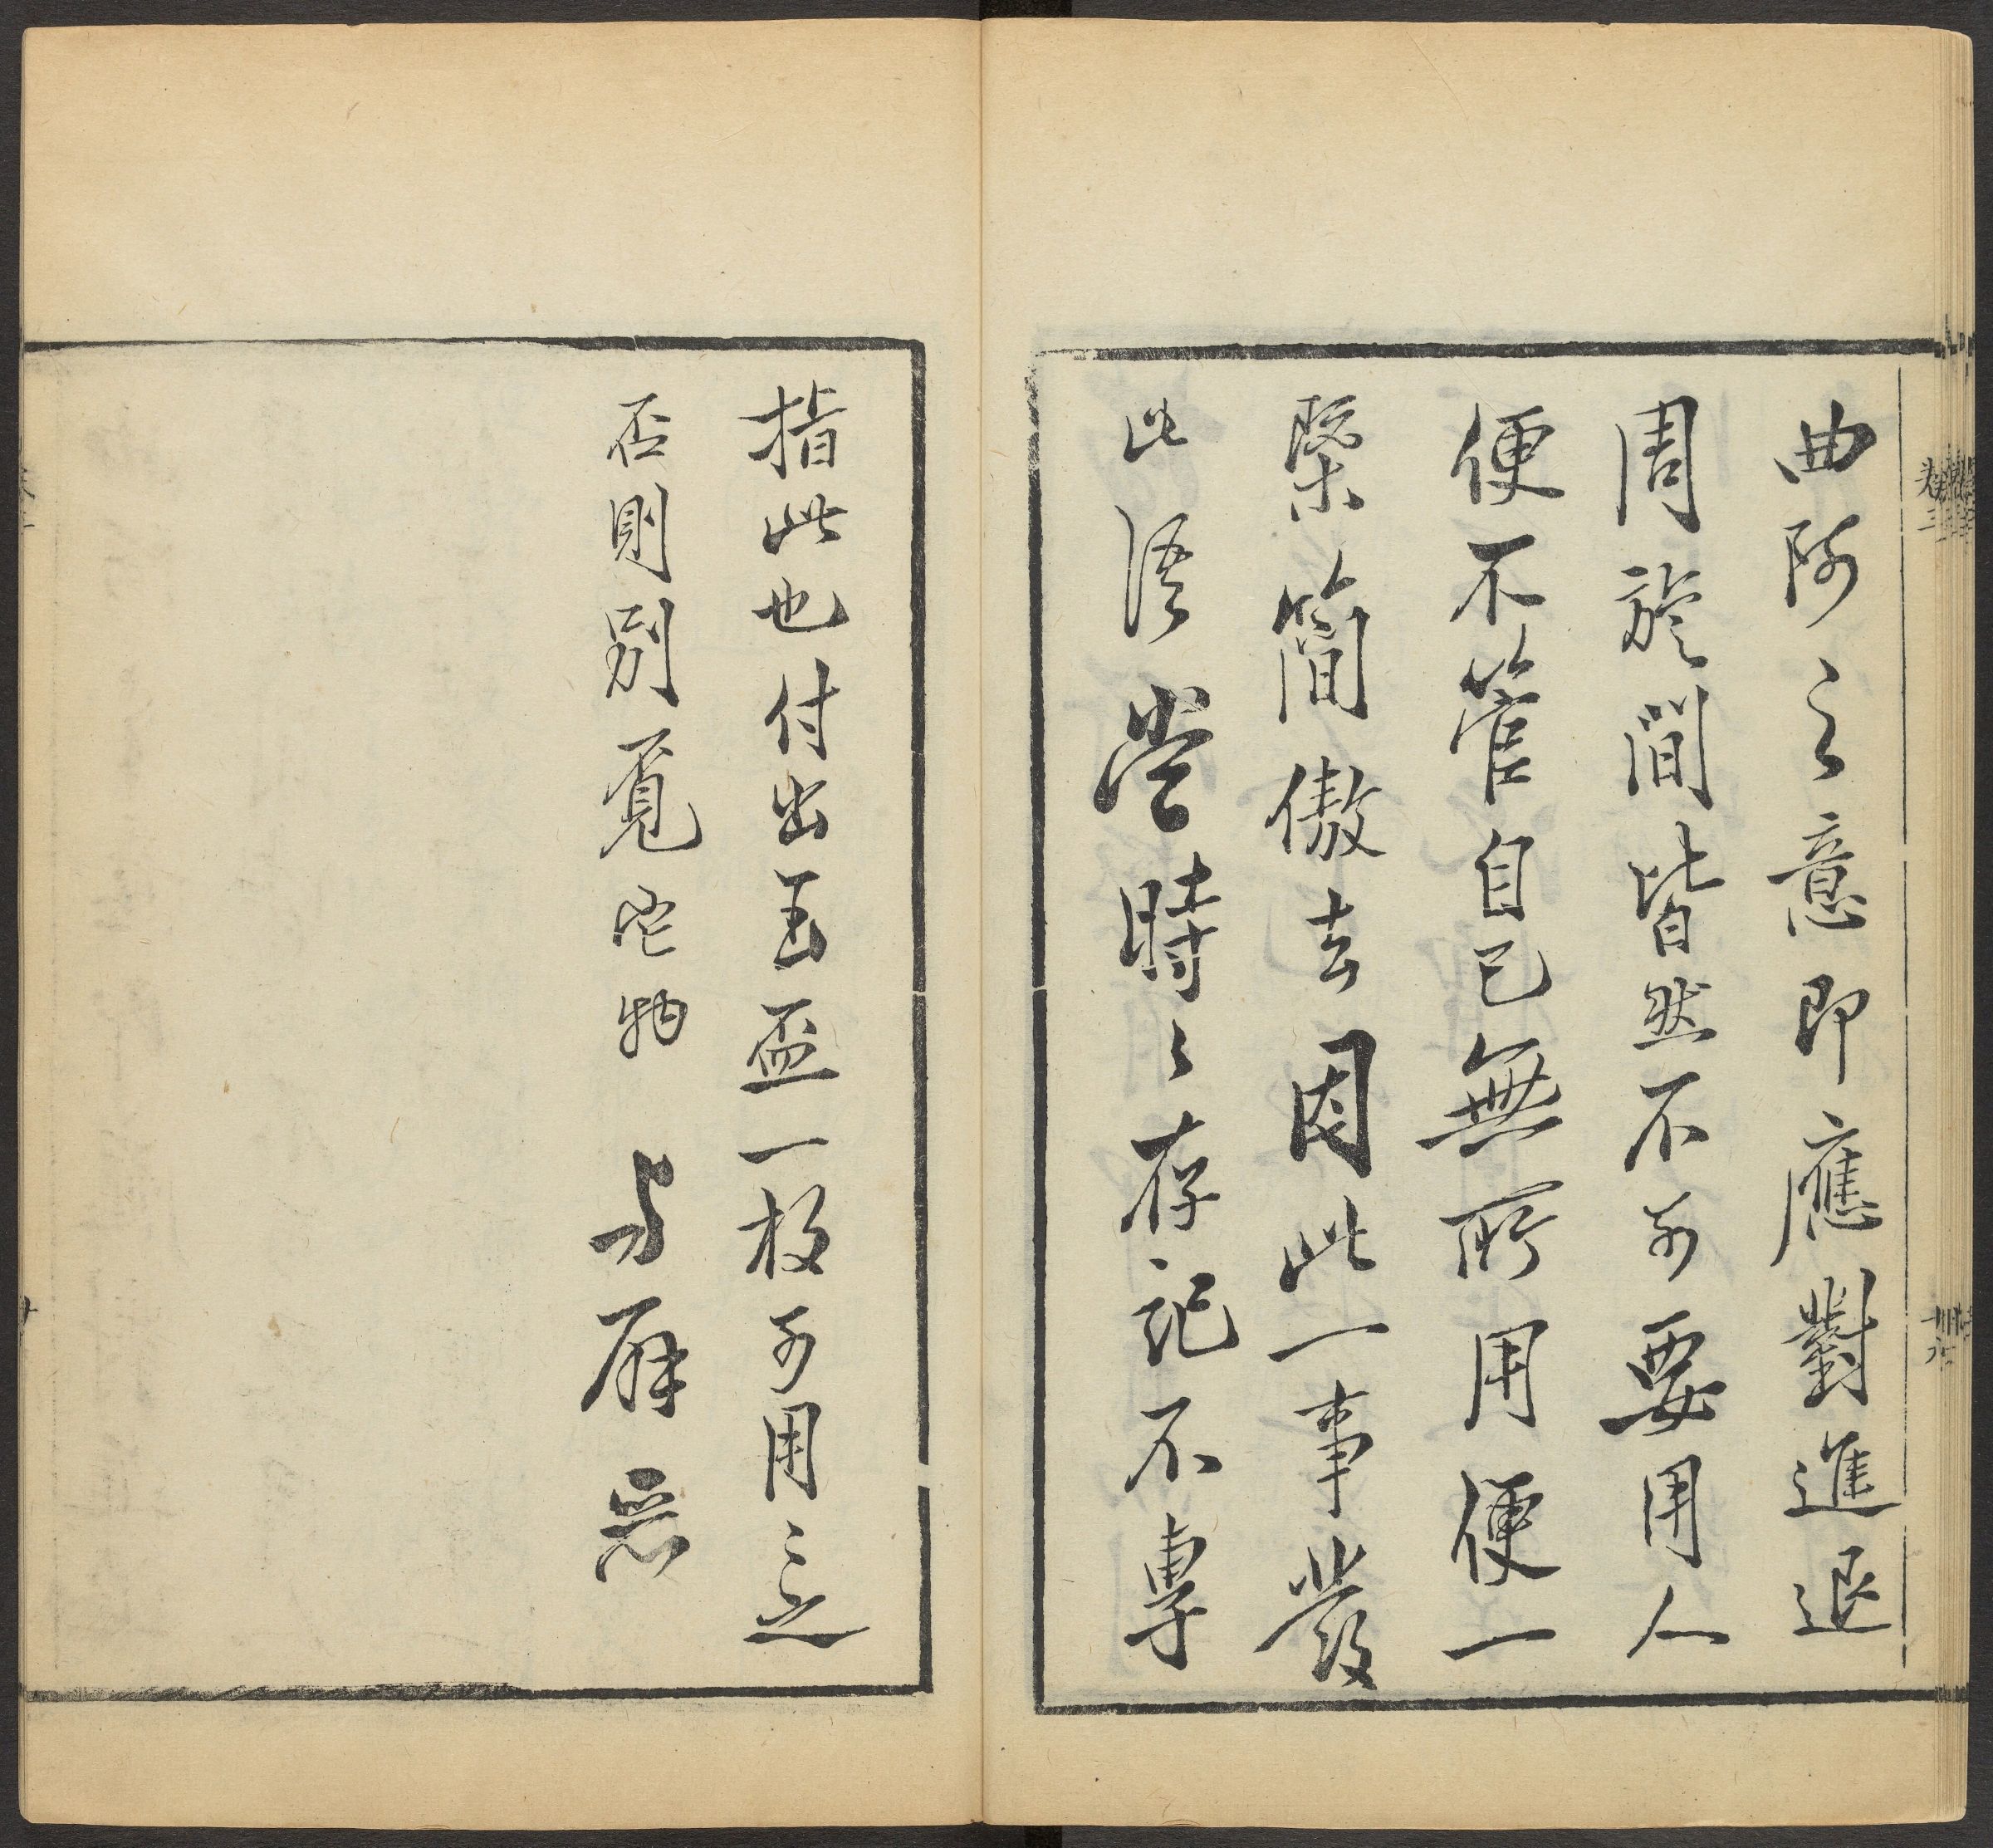 曲阿之意即應對進退
周旋間皆然不可要用人
便不管自己無所用便一
槩簡傲去因此一事發
此語當時〻存記不專
指此也付出玉盃一枚可用之
否則別覓它物 与辟惡
卷三